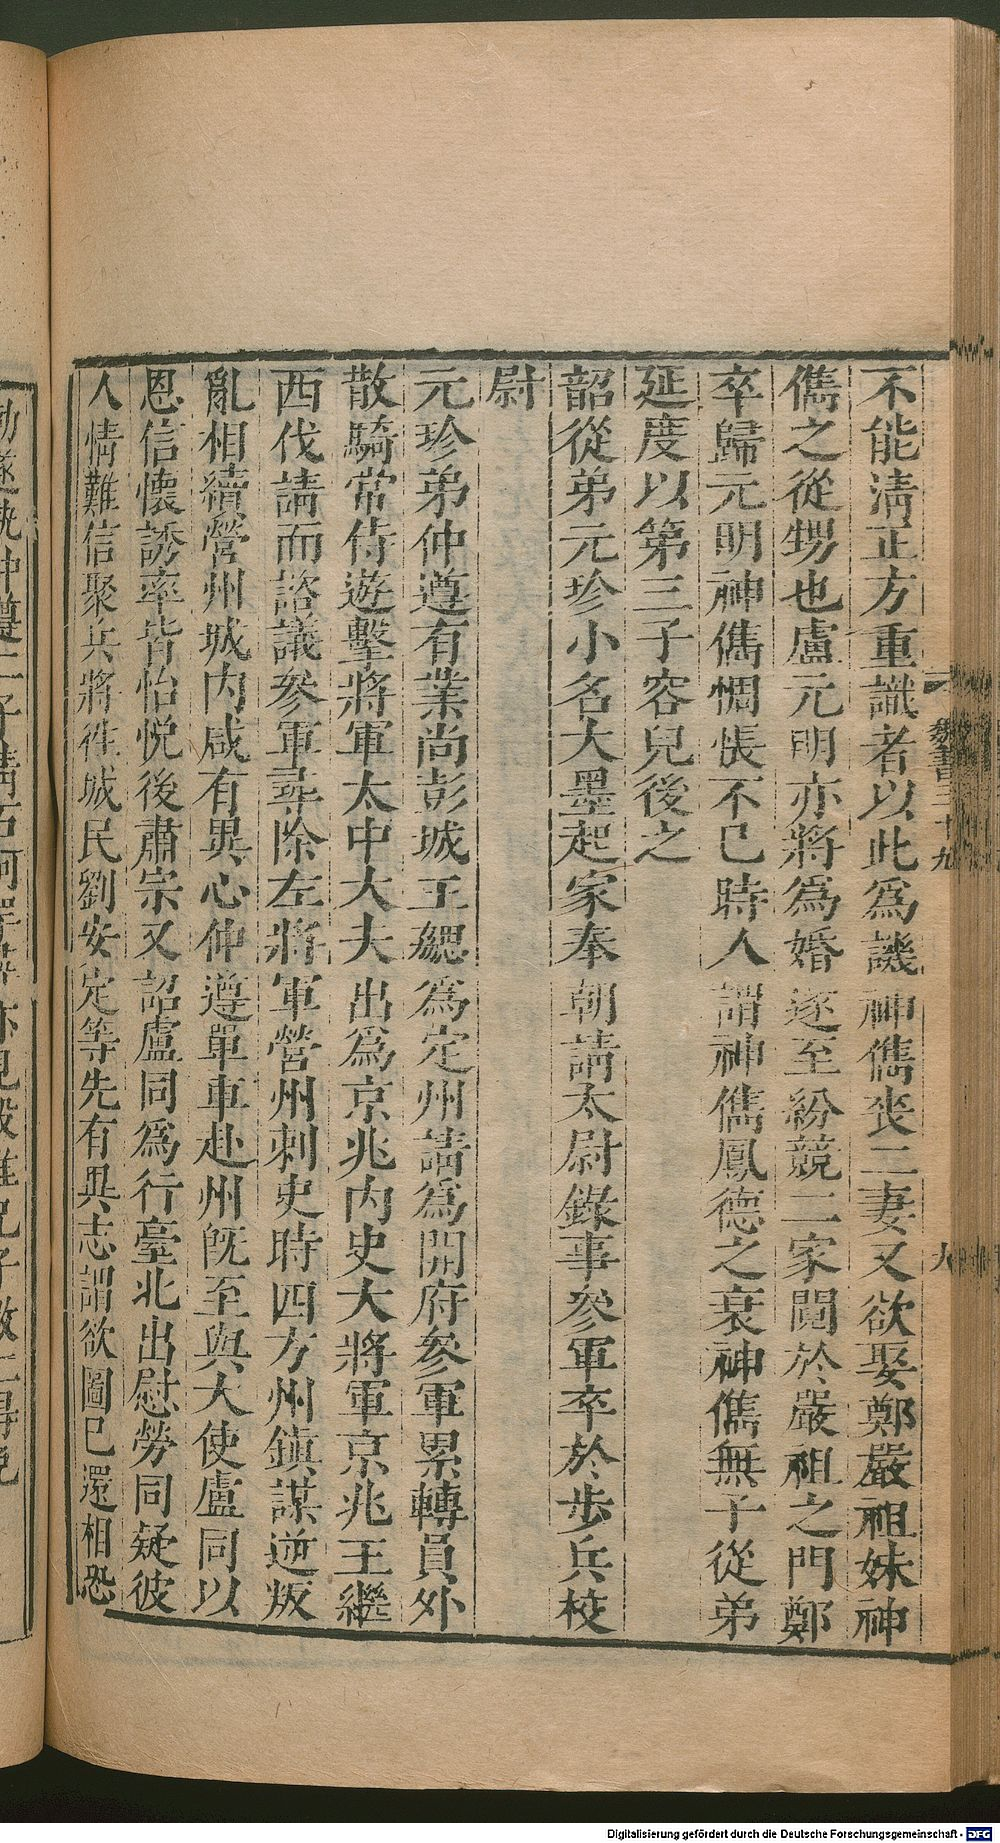 不能清正方重識者以此爲譏神儁喪二妻又欲娶鄭嚴祖妹神
儁之從甥也盧元明亦將爲婚逐至紛競二家鬩於嚴祖之門鄭
卒歸元明神儁惆悵不已時人謂神儁鳳德之衰神儁無子從弟
延度以第三子容兒後之
韶從弟元珍小名大墨起家奉朝請太尉錄事參軍卒於步兵校
尉
元珍弟仲遵有業尚彭城王勰爲定州請爲開府參軍累轉員外
散騎常侍遊擊將軍太中大夫出爲京兆內史大將軍京兆王繼
西伐請而諮議參軍尋除左將軍營州刺史時四方州鎮謀逆叛
亂相續營州城內咸有異心仲遵單車赴州旣至與大使盧同以
恩信懷誘率皆怡悅後肅宗又詔盧同爲行臺北出慰勞同疑彼
人情難信聚兵將往城民劉安定等先有異志謂欲圖己還相恐
魏書三十九
九
Digitalisierung gefördert durch die Deutsche Forschungsgemeinschaft - DFG